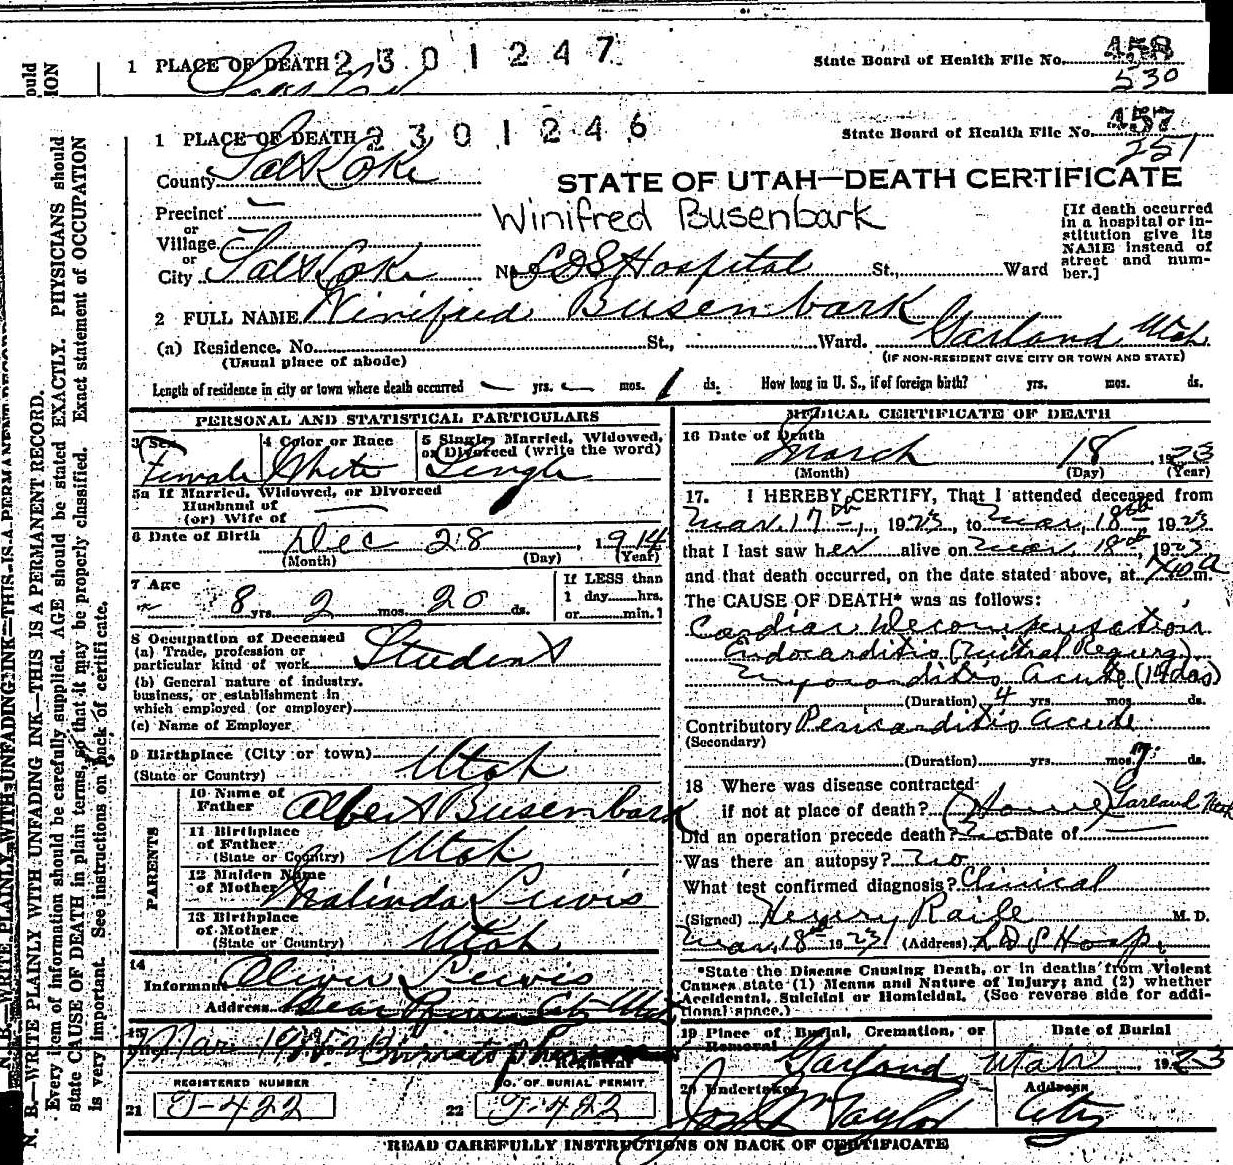 1 PLACE OF DEATH 2301247 State Board of Health File No. 458
530
ould
ION
1 PLACE OF DEATH 2301246 State Board of Health File No. 457
251
County Salt Lake
STATE OF UTAH—DEATH CERTIFICATE
Precinct —
Winifred Busenbark
or
Village —
or
City Salt Lake No. LDS Hospital St., Ward
[If death occurred
in a hospital or in-
stitution give its
NAME instead of
street and num-
ber.]
2 FULL NAME Winifred Busenbark
(a) Residence. No. St., Ward. Garland Utah
(Usual place of abode) (IF NON-RESIDENT GIVE CITY OR TOWN AND STATE)
Length of residence in city or town where death occurred — yrs. — mos. 1 ds. How long in U. S., if of foreign birth? yrs. mos. ds.
PERSONAL AND STATISTICAL PARTICULARS
3 Sex 4 Color or Race 5 Single, Married, Widowed,
or Divorced (write the word)
Female White Single
5a If Married, Widowed, or Divorced
Husband of
(or) Wife of —
6 Date of Birth Dec 28, 1914
(Month) (Day) (Year)
7 Age 8 yrs. 2 mos. 20 ds.
If LESS than
1 day hrs.
or min.]
8 Occupation of Deceased
(a) Trade, profession or
particular kind of work Student
(b) General nature of industry.
business, or establishment in
which employed (or employer)
(c) Name of Employer
9 Birthplace (City or town)
(State or Country) Utah
PARENTS
10 Name of
Father Albert Busenbark
11 Birthplace
of Father
(State or Country) Utah
12 Maiden Name
of Mother Malinda Lewis
13 Birthplace
of Mother
(State or Country) Utah
14
Informant Oliver Lewis
Address Bear River City Utah
15
Mar 19
Registrar
REGISTERED NUMBER NO. OF BURIAL PERMIT
21 J-422 22 J-422
MEDICAL CERTIFICATE OF DEATH
16 Date of Death
March 18 1923
(Month) (Day) (Year)
17. I HEREBY CERTIFY, That I attended deceased from
Mar. 17th, 1923, to Mar. 18th 1923
that I last saw her alive on Mar. 18th, 1923
and that death occurred, on the date stated above, at 740 a m.
The CAUSE OF DEATH* was as follows:
Cardiac Decompensation
Endocarditis (Mitral Regurg)
Myocarditis Acute (14 das)
(Duration) 4 yrs. mos. ds.
Contributory Pericarditis acute
(Secondary)
(Duration) yrs. mos. 7 ds.
18 Where was disease contracted
if not at place of death? (Home) Garland Utah
Did an operation precede death? No Date of —
Was there an autopsy? No
What test confirmed diagnosis? Clinical
(Signed) Henry Raile M. D.
Mar. 18th 1923 (Address) LDS Hosp.
*State the Disease Causing Death, or in deaths from Violent
Causes state (1) Means and Nature of Injury; and (2) whether
Accidental, Suicidal or Homicidal. (See reverse side for addi-
tional space.)
19 Place of Burial, Cremation, or
Removal Date of Burial
Garland Utah 1923
20 Undertaker Address
Jos Wm Taylor City
READ CAREFULLY INSTRUCTIONS ON BACK OF CERTIFICATE
N. B.—WRITE PLAINLY WITH UNFADING INK—THIS IS A PERMANENT RECORD.
Every item of information should be carefully supplied. AGE should be stated EXACTLY. PHYSICIANS should
state CAUSE OF DEATH in plain terms, so that it may be properly classified. Exact statement of OCCUPATION
is very important. See instructions on back of certificate.